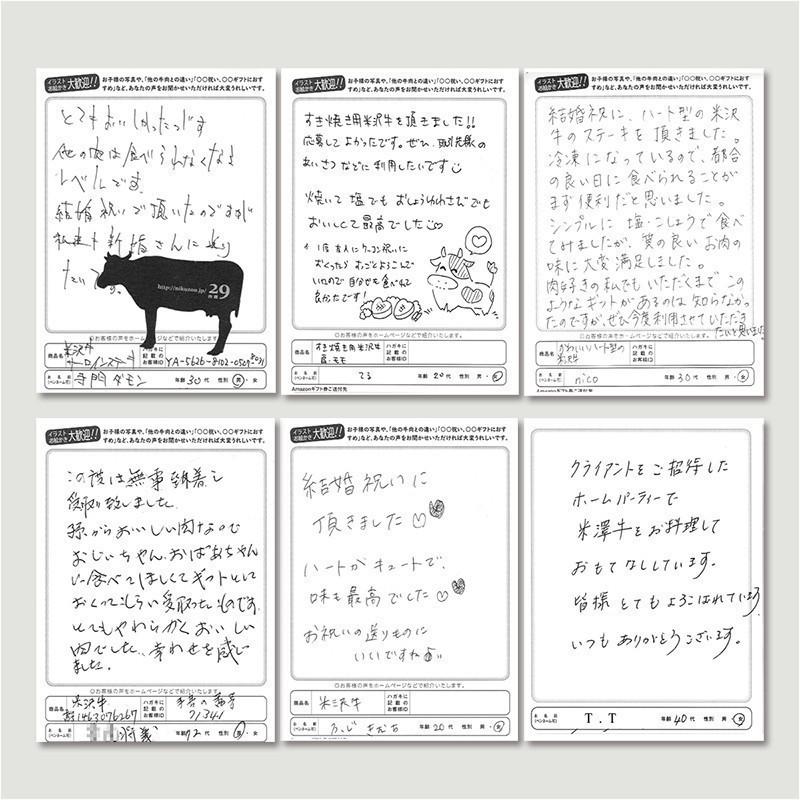 イラスト
お絵かき
大歓迎!!
お子様の写真や、「他の牛肉との違い」「〇〇祝い、〇〇ギフトにおす
すめ」など、あなたの声をお聞かせいただければ大変うれしいです。
とてもおいしかったです
他の肉は食べられなくなる
レベルです。
結婚祝いで頂いたのですが
私達も新婚さんに送り
たいです。
http://nikuzou.jp/
29
◎お客様の声をホームページなどで紹介いたします。
商品名
米沢牛
サーロインステーキ
ハガキに
記載の
お客様ID
お名前
(ペンネーム可)
寺門ダモン
年齢 30代 性別 男・女
イラスト
お絵かき
大歓迎!!
お子様の写真や、「他の牛肉との違い」「〇〇祝い、〇〇ギフトにおす
すめ」など、あなたの声をお聞かせいただければ大変うれしいです。
すき焼き用米沢牛を頂きました!!
応募してよかったです。ぜひ、取引先様の
あいさつなどに利用したいです
焼いて塩でもおしょうゆわさびでも
おいしくて最高でした
おくったらすごとよろこんで
いたので自分も食べれて
良かったです!
◎お客様の声をホームページなどで紹介いたします。
商品名
すき焼き用米沢牛
肩・モモ
ハガキに
記載の
お客様ID
お名前
(ペンネーム可)
てる
年齢 20代 性別 男・女
Amazonギフト券ご送付先
イラスト
お絵かき
大歓迎!!
お子様の写真や、「他の牛肉との違い」「〇〇祝い、〇〇ギフトにおす
すめ」など、あなたの声をお聞かせいただければ大変うれしいです。
結婚祝に、ハート型の米沢
牛のステーキを頂きました。
冷凍になっているので、都合
の良い日に食べられることが
まず便利だと思いました。
シンプルに塩・こしょうで食べ
てみましたが、質の良いお肉の
味に大変満足しました。
肉好きの私でもいただくまでこの
ようなギフトがあるのは知らなかっ
たのですが、ぜひ今度利用させていただき
たいと思いました。
◎お客様の声をホームページなどで紹介いたします。
商品名
かわいいハート型の
米沢牛
ハガキに
記載の
お客様ID
お名前
(ペンネーム可)
nico
年齢 30代 性別 男・女
イラスト
お絵かき
大歓迎!!
お子様の写真や、「他の牛肉との違い」「〇〇祝い、〇〇ギフトにおす
すめ」など、あなたの声をお聞かせいただければ大変うれしいです。
この度は無事到着し
受取り致しました。
孫からおいしい肉なので
おじいちゃん、おばあちゃん
に食べてほしくてギフトとして
おくってもらい受取ったものです。
とてもやわらかくおいしい
肉でした。幸わせを感じ
ました。
◎お客様の声をホームページなどで紹介いたします。
商品名
米沢牛
ハガキに
記載の
お客様ID
71341
お名前
(ペンネーム可)
年齢 72代 性別 男・女
イラスト
お絵かき
大歓迎!!
お子様の写真や、「他の牛肉との違い」「〇〇祝い、〇〇ギフトにおす
すめ」など、あなたの声をお聞かせいただければ大変うれしいです。
結婚祝いに
頂きました
ハートがキュートで、
味も最高でした
お祝いの送りものに
いいですね
◎お客様の声をホームページなどで紹介いたします。
商品名
米沢牛
ハガキに
記載の
お客様ID
お名前
(ペンネーム可)
年齢 20代 性別 男・女
クライアントをご招待した
ホームパーティーで
米澤牛をお料理して
おもてなししています。
皆様とてもよろこばれています
いつもありがとうございます。
お名前
(ペンネーム可)
T.T
年齢 40代 性別 男・女